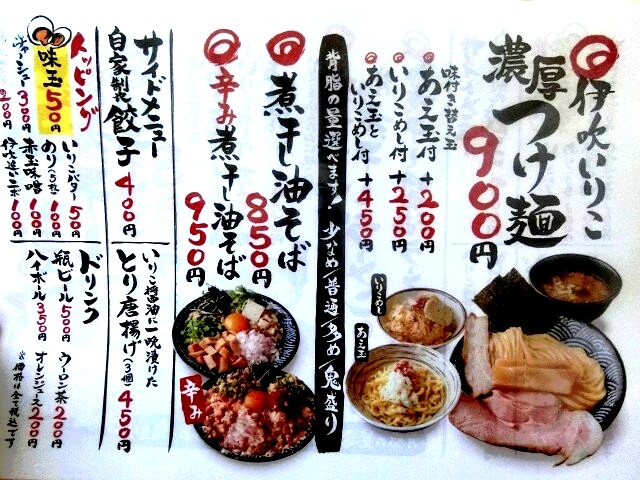 伊吹いりこ
濃厚つけ麺
900円
味付き替え玉
あえ玉付 +200円
いりこめし付 +250円
あえ玉と
いりこめし付 +450円
いりこめし
あえ玉
背脂の量選べます! 少なめ/普通/多め/鬼盛り
煮干し油そば
850円
辛み煮干し油そば
950円
辛み
サイドメニュー
自家製餃子 400円
いりこ醤油に一晩漬けた
とり唐揚げ(3個) 450円
トッピング
味玉 50円
チャーシュー 300円
いりこバター 50円
のり(5枚) 100円
赤玉味噌 100円
伊吹追いニボ 100円
ドリンク
瓶ビール 500円
ハイボール 350円
ウーロン茶 200円
オレンジジュース 200円
※価格は全て税込です